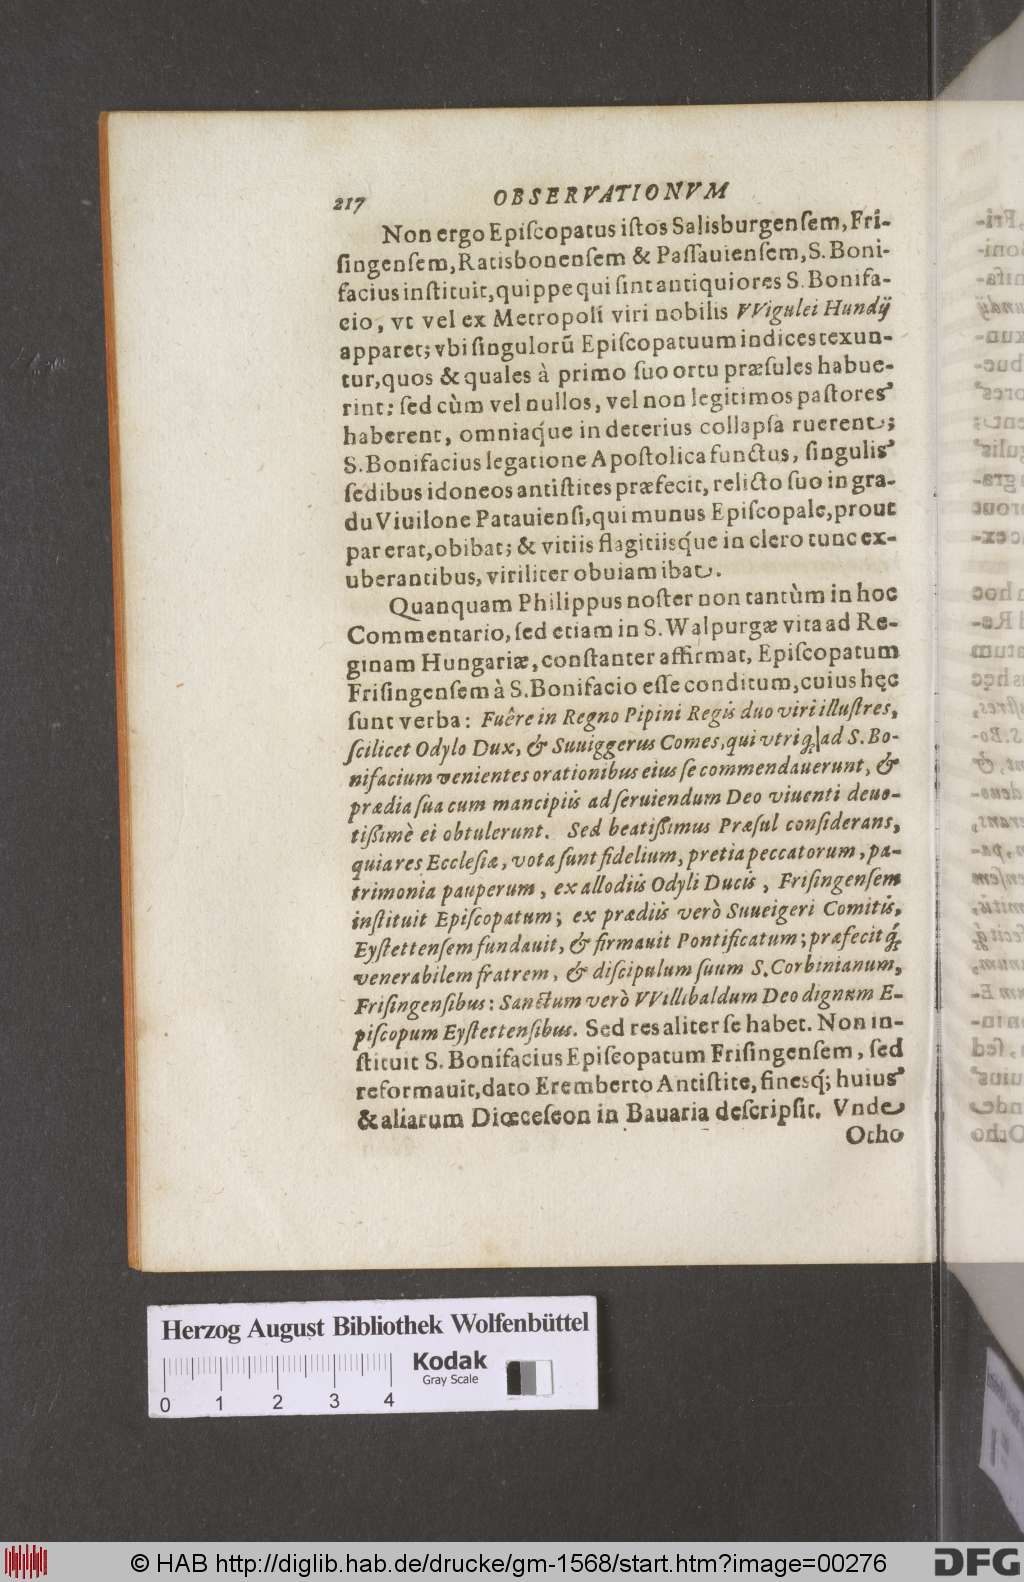 217 OBSERVATIONVM
Non ergo Epiſcopatus iſtos Salisburgenſem, Fri-
ſingenſem, Ratisbonenſem & Paſſauienſem, S. Boni-
facius inſtituit, quippe qui ſint antiquiores S. Bonifa-
cio, vt vel ex Metropoli viri nobilis VViguleі Hundij
apparet; vbi ſingulorũ Epiſcopatuum indices texun-
tur, quos & quales à primo ſuo ortu præſules habue-
rint: ſed cùm vel nullos, vel non legitimos paſtores
haberent, omniaq́ue in deterius collapſa ruerent;
S. Bonifacius legatione Apoſtolica functus, ſingulis
ſedibus idoneos antiſtites præfecit, relicto ſuo in gra-
du Viuilone Patauienſi, qui munus Epiſcopale, prout
par erat, obibat; & vitiis flagitiisq́ue in clero tunc ex-
uberantibus, viriliter obuiam ibat.
Quanquam Philippus noſter non tantùm in hoc
Commentario, ſed etiam in S. Walpurgæ vita ad Re-
ginam Hungariæ, conſtanter affirmat, Epiſcopatum
Friſingenſem à S. Bonifacio eſſe conditum, cuius hęc
ſunt verba: Fuêre in Regno Pipini Regis duo viri illuſtres,
ſcilicet Odylo Dux, & Suuiggerus Comes, qui vtriq; ad S. Bo-
nifacium venientes orationibus eius ſe commendauerunt, &
prædia ſua cum mancipiis ad ſeruiendum Deo viuenti deuo-
tißimè ei obtulerunt. Sed beatißimus Præſul conſiderans,
quia res Eccleſiæ, vota ſunt fidelium, pretia peccatorum, pa-
trimonia pauperum, ex allodiis Odyli Ducis, Friſingenſem
inſtituit Epiſcopatum; ex prædiis verò Suueigeri Comitis,
Eyſtettenſem fundauit, & firmauit Pontificatum; præfecit q́;
venerabilem fratrem, & diſcipulum ſuum S. Corbinianum,
Friſingenſibus: Sanctum verò VVillibaldum Deo dignum E-
piſcopum Eyſtettenſibus. Sed res aliter ſe habet. Non in-
ſtituit S. Bonifacius Epiſcopatum Friſingenſem, ſed
reformauit, dato Eremberto Antiſtite, finesq́; huius
& aliarum Diœceſeon in Bauaria deſcripſit. Vnde
Otho
Herzog August Bibliothek Wolfenbüttel
Kodak
Gray Scale
0 1 2 3 4
© HAB http://diglib.hab.de/drucke/gm-1568/start.htm?image=00276
DFG